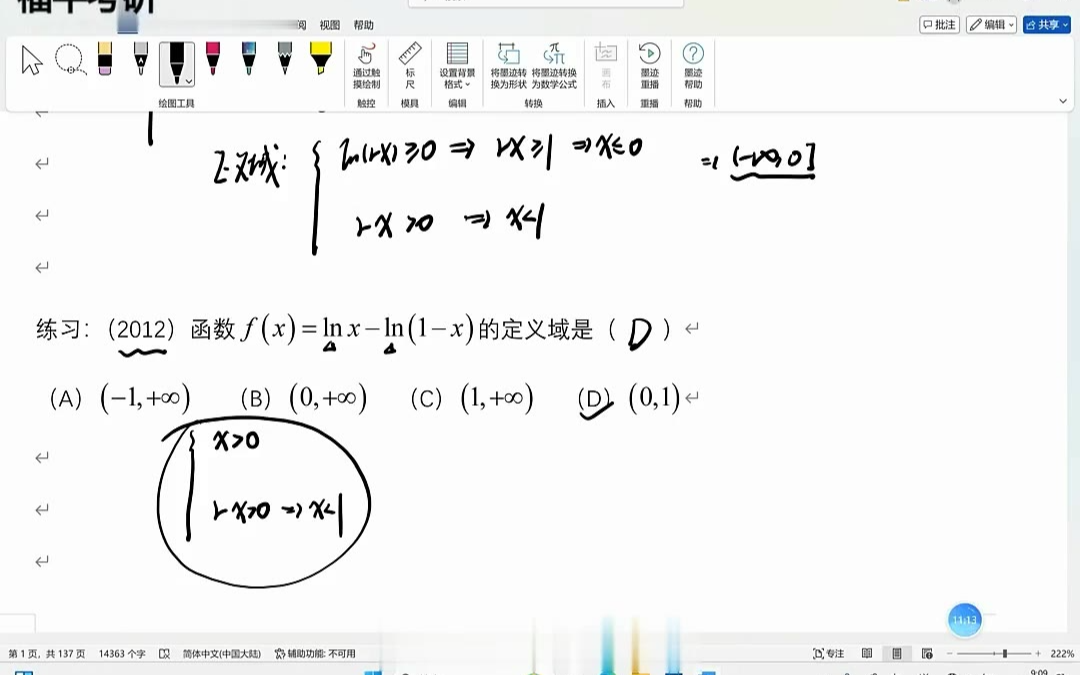 福平考研
阅 视图 帮助
批注 编辑 共享
通过触摸绘制 标尺 设置背景格式 将墨迹转换为形状 将墨迹转换为数学公式 画布 墨迹重播 墨迹帮助
绘图工具 触控 模具 编辑 转换 插入 重播 帮助
定义域: { ln(1-x)≥0 ⇒ 1-x≥1 ⇒ x≤0 ⇒ (-∞,0]
1-x>0 ⇒ x<1
练习:(2012)函数 f(x)=ln x-ln(1-x)的定义域是( D )
(A) (-1,+∞) (B) (0,+∞) (C) (1,+∞) (D) (0,1)
x>0
1-x>0 ⇒ x<1
11:13
第 1 页, 共 137 页 14363 个字 简体中文(中国大陆) 辅助功能: 不可用 专注 222%
9:09